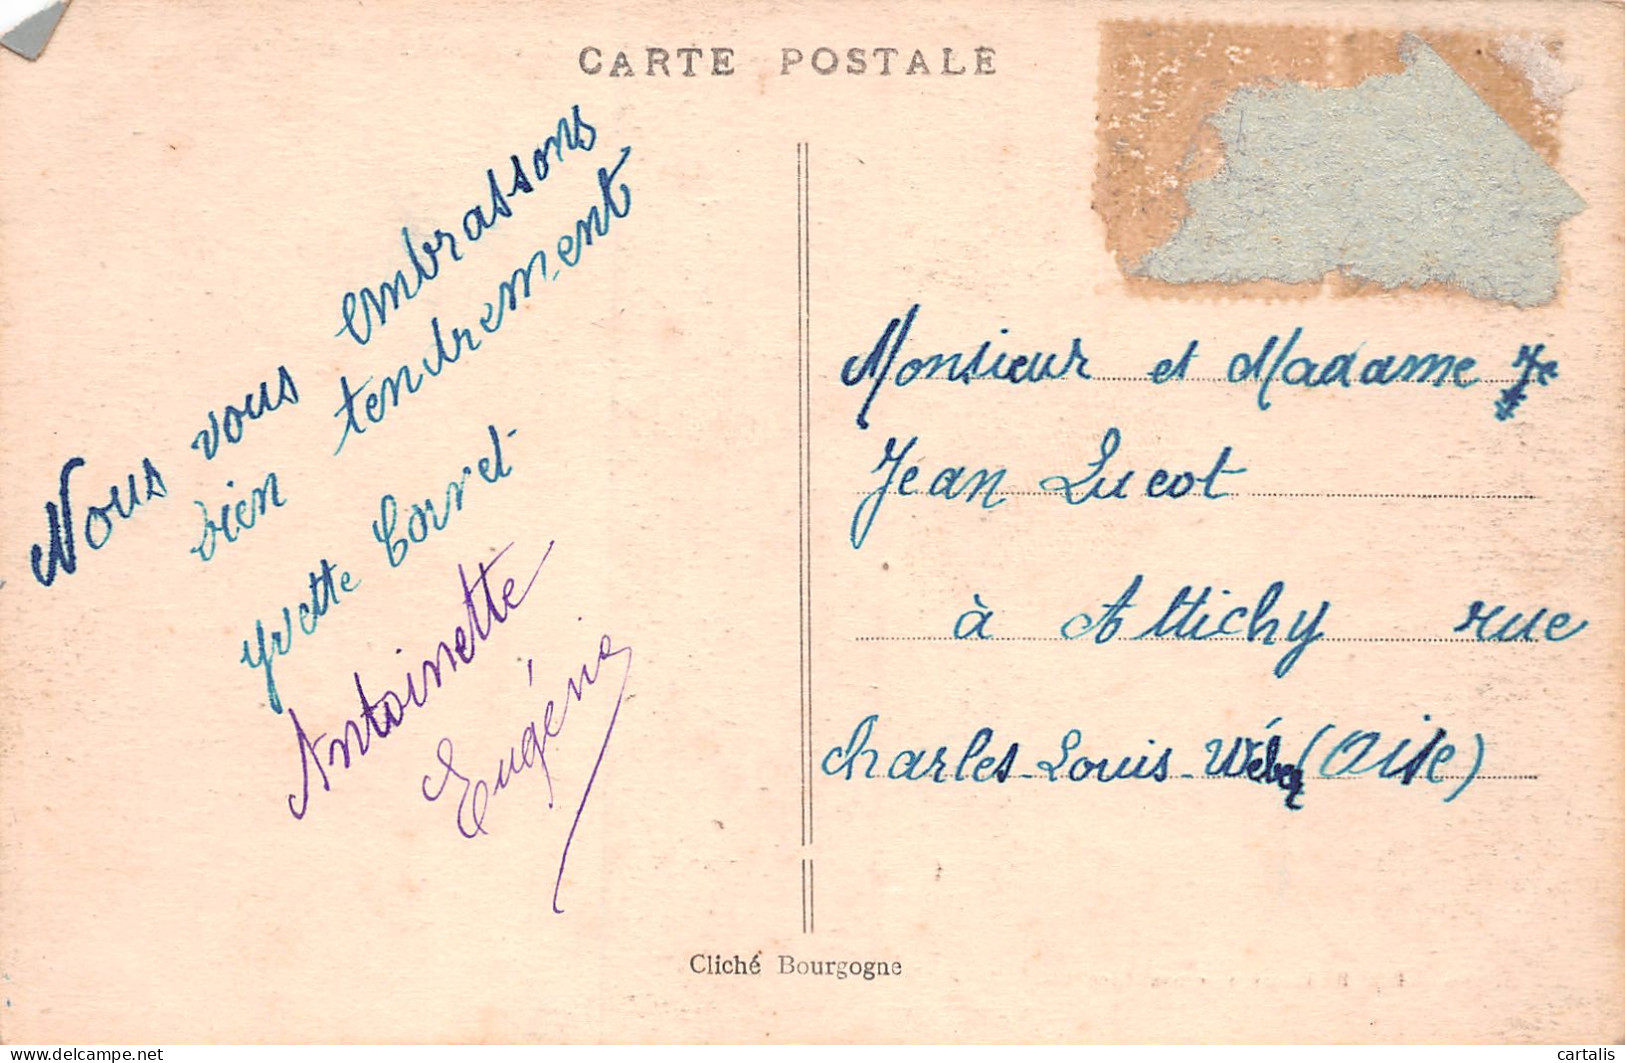 CARTE POSTALE
Nous vous embrassons
bien tendrement
Yvette
Antoinette
Eugénie
Monsieur et Madame Je
Jean Lucot
à Attichy rue
Charles-Louis-Wéber (Oise)
Cliché Bourgogne
delcampe.net
cartalis